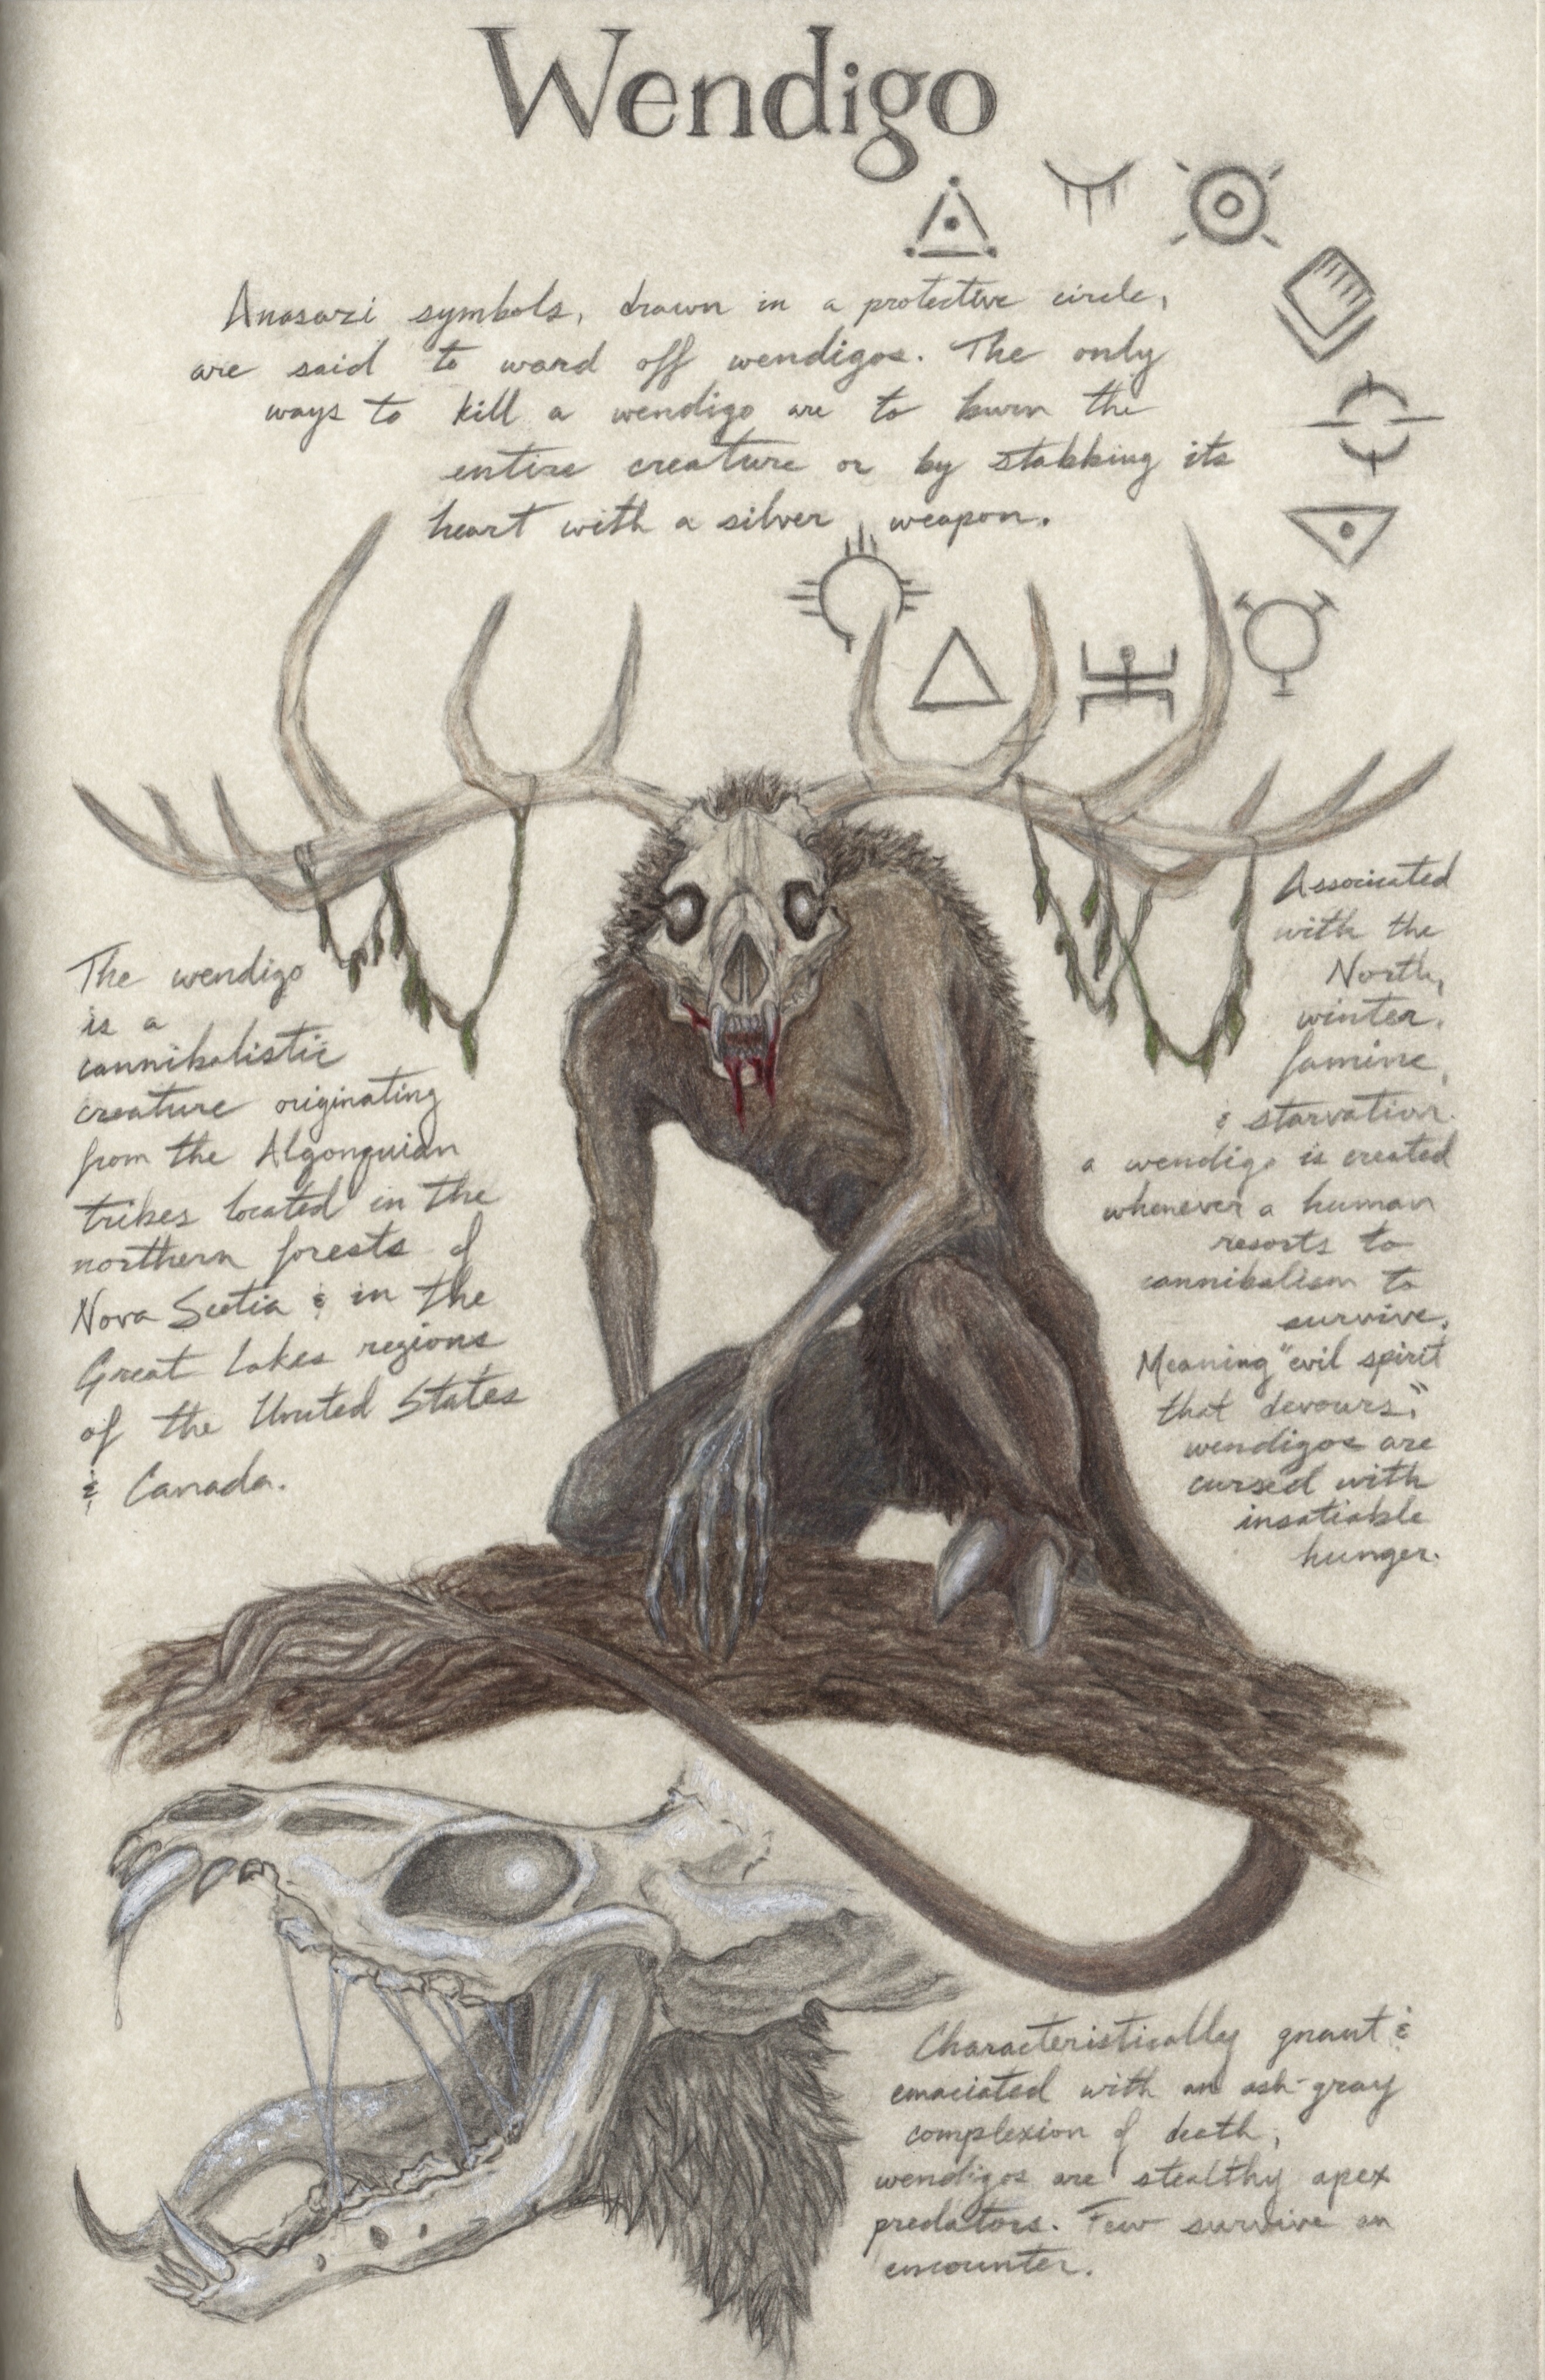 Wendigo
Anasazi symbols, drawn in a protective circle,
are said to ward off wendigos. The only
ways to kill a wendigo are to burn the
entire creature or by stabbing its
heart with a silver weapon.
The wendigo
is a
cannibalistic
creature originating
from the Algonquian
tribes located in the
northern forests of
Nova Scotia & in the
Great Lakes regions
of the United States
& Canada.
Associated
with the
North,
winter,
famine,
& starvation.
a wendigo is created
whenever a human
resorts to
cannibalism to
survive.
Meaning "evil spirit
that devours,"
wendigos are
cursed with
insatiable
hunger.
Characteristically gnaut &
emaciated with an ash-gray
complexion of death,
wendigos are stealthy apex
predators. Few survive an
encounter.